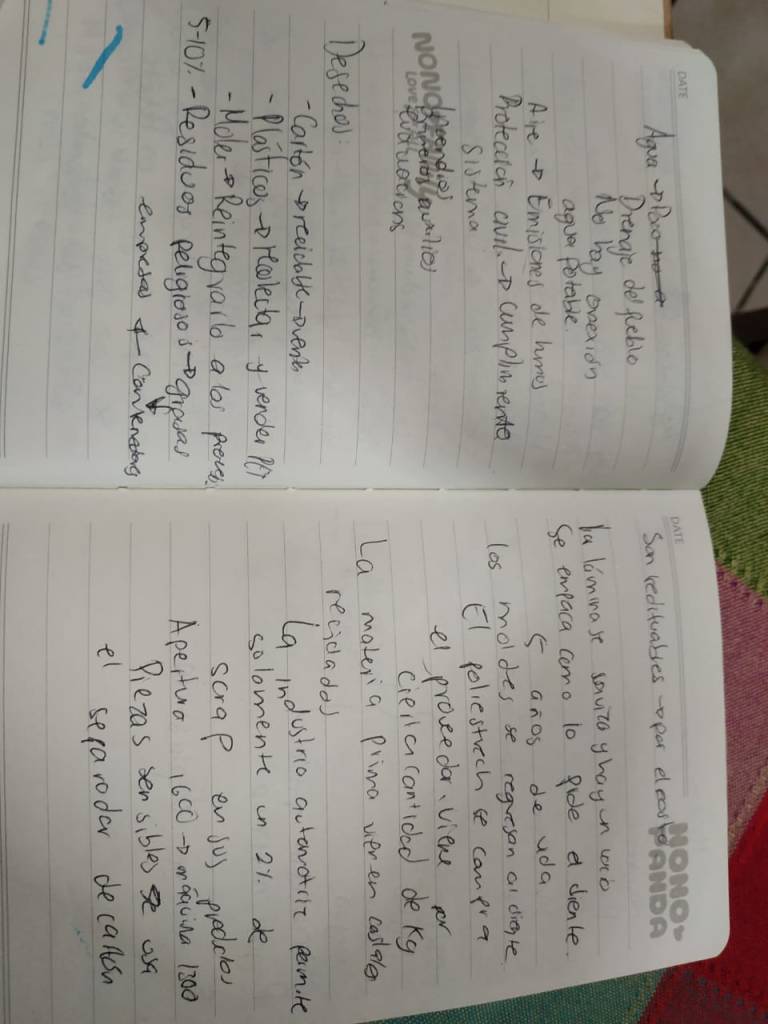 DATE
Agua → Pozo
Drenaje del pueblo
No hay conexión
agua potable.
Aire → Emisiones de humos
Protección civil. → Cumplimiento
Sistema
NONO
LOVE
Incendios
Primeros auxilios
evacuaciones
Desechos:
- Cartón → reciclable → venta
- Plásticos → recolecta, y vender
- Moler → Reintegrarlo a los
5-10% - Residuos peligrosos →
empresas ←
DATE
Son redituables → por el costo
NONO
PANDA
La lámina se y hay un
Se empaca como lo pide el cliente.
5 años de vida
los moldes se regresan al cliente.
El poliestrech se compra
el proveedor. viene por
cierta cantidad de Kg
La materia prima viene en
reciclados
La industria automotriz permite
solamente un 2% de
scrap en sus productos
Apertura 1600 → máquina 1300
Piezas sensibles se usa
el separador de cartón